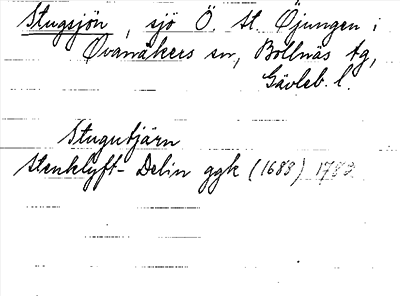 Stugsjön, sjö Ö. St. Öjungen i
Ovanåkers sn, Bollnäs tg,
Gävleb. l.
Stugutjärn
Stenklyft- Delin ggk (1688) 1782